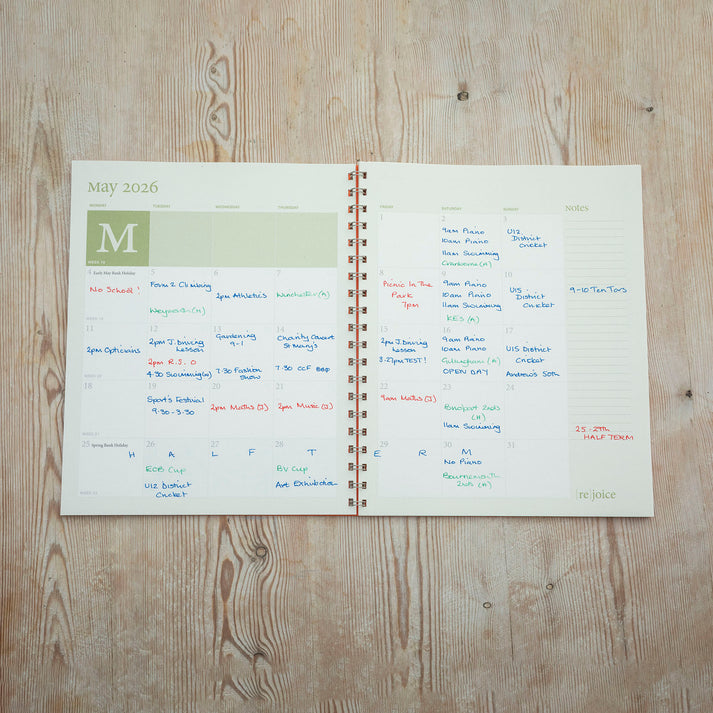 May 2026
MONDAY TUESDAY WEDNESDAY THURSDAY FRIDAY SATURDAY SUNDAY
Notes
M
WEEK 18
1
2
9am Piano
10am Piano
11am Swimming
Cranborne (H)
3
U12
District
Cricket
4 Early May Bank Holiday
No School!
WEEK 19
5
Form 2 Climbing
Weymouth (H)
6
2pm Athletics
7
Winchester (A)
8
Picnic In The
Park
7pm
9
9am Piano
10am Piano
11am Swimming
KES (A)
10
U15
District
Cricket
9-10 Ten Tors
11
2pm Opticians
WEEK 20
12
2pm J. Driving
Lesson
2pm R.S. O
4.30 Swimming (W)
13
Gardening
9-1
7.30 Fashion
Show
14
Charity Concert
St Mary's
7.30 CCF BBQ
15
2pm J. Driving
Lesson
3.27pm TEST!
16
9am Piano
10am Piano
Gillingham (A)
OPEN DAY
17
U15 District
Cricket
Andrew's 50th
18
WEEK 21
19
Sport's Festival
9.30-3.30
20
2pm Maths (J)
21
2pm Music (J)
22
9am Maths (J)
23
2nds
(H)
11am Swimming
24
25-29th
HALF TERM
25 Spring Bank Holiday
26
27
28
29
30
31
H A L F T E R M
WEEK 22
ECB Cup
U12 District
Cricket
BV Cup
Art Exhibition
No Piano
Bournemouth
2nds (A)
[re]joice